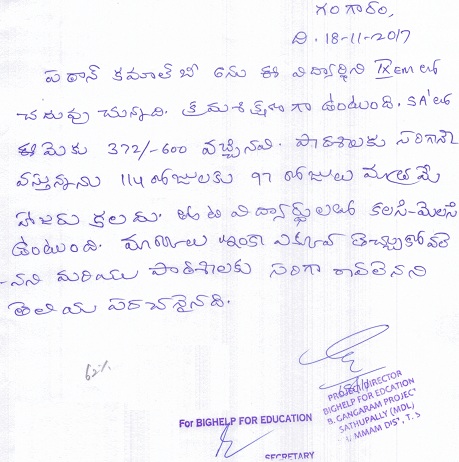 గంగారం,
ది. 18-11-2017
పఠాన్ కమాల్ బి అను ఈ విద్యార్థిని IX Em లో
చదువు చున్నాది. క్రమశిక్షణ గా ఉంటుంది. SA'లో
ఈమెకు 372/-600 వచ్చినవి. పాఠశాలకు సరిగానే
వస్తున్నాను 114 రోజులకు 97 రోజులు మాత్రమే
హాజరు కలదు. తోటి విద్యార్థులతో కలసి-మెలసి
ఉంటుంది. మార్కులు ఇంకా ఎక్కువ తెచ్చుకోవలె
నని మరియు పాఠశాలకు సరిగా రావలెనని
తెలియ పరచనైనది.
62%
PROJECT DIRECTOR
BIGHELP FOR EDCATION
B. GANGARAM PROJECT
SATHUPALLY (MDL)
MMAM DIST, T.S
For BIGHELP FOR EDUCATION
SECRETARY